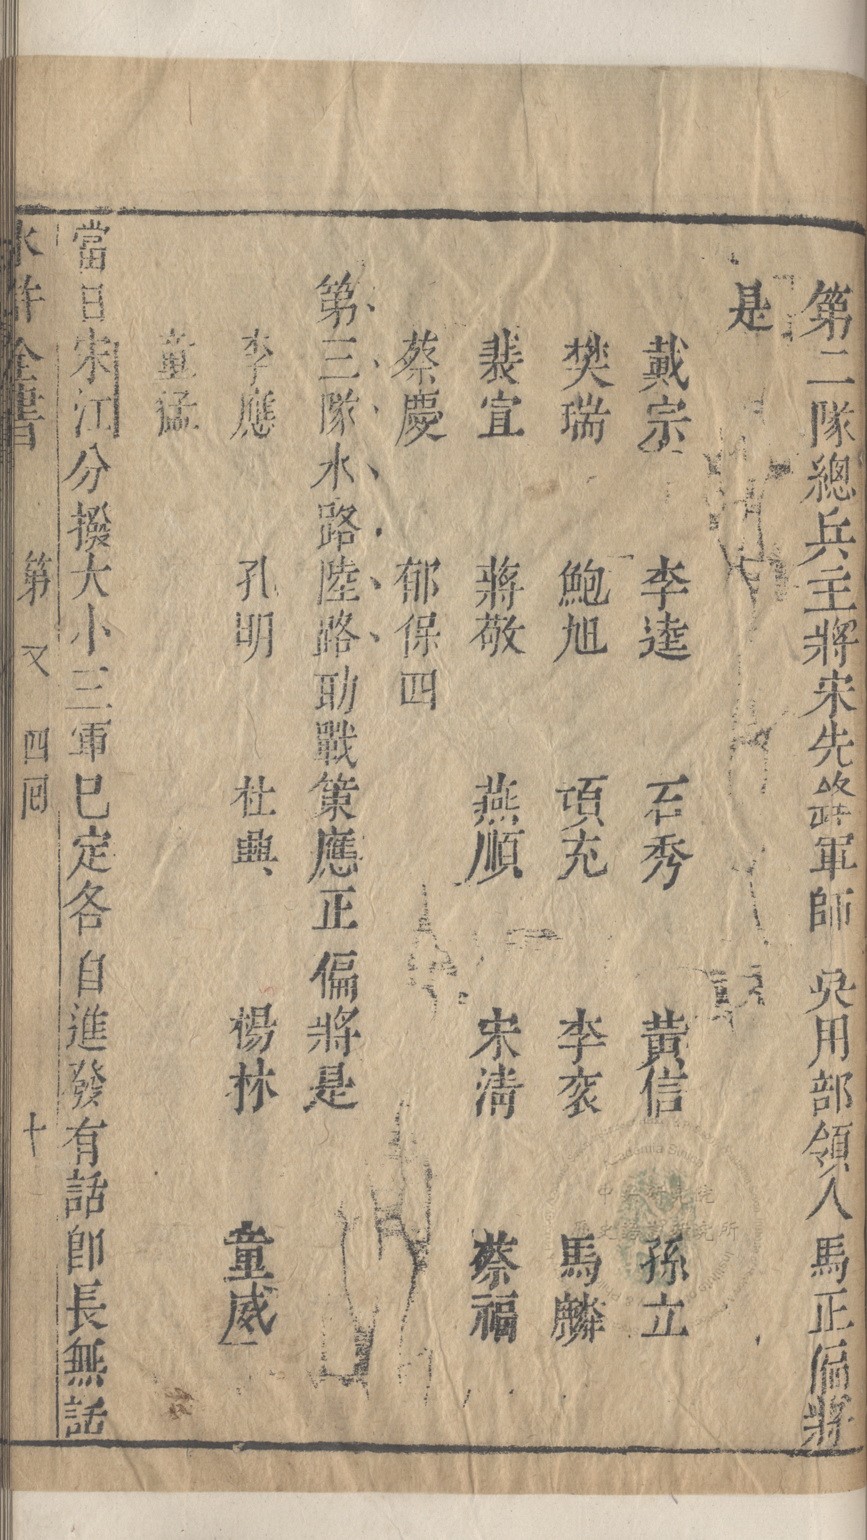 第二隊總兵主將宋先鋒軍師吳用部領人馬正偏將
是
戴宗 李逵 石秀 黃信 孫立
樊瑞 鮑旭 項充 李袞 馬麟
裴宣 蔣敬 燕順 宋清 蔡福
蔡慶 郁保四
第三隊水路陸路助戰策應正偏將是
李應 孔明 杜興 楊林 童威
童猛
當日宋江分撥大小三軍已定各自進發有話即長無話
水滸全書 第又四回 十
中央研究院
歷史語言研究所